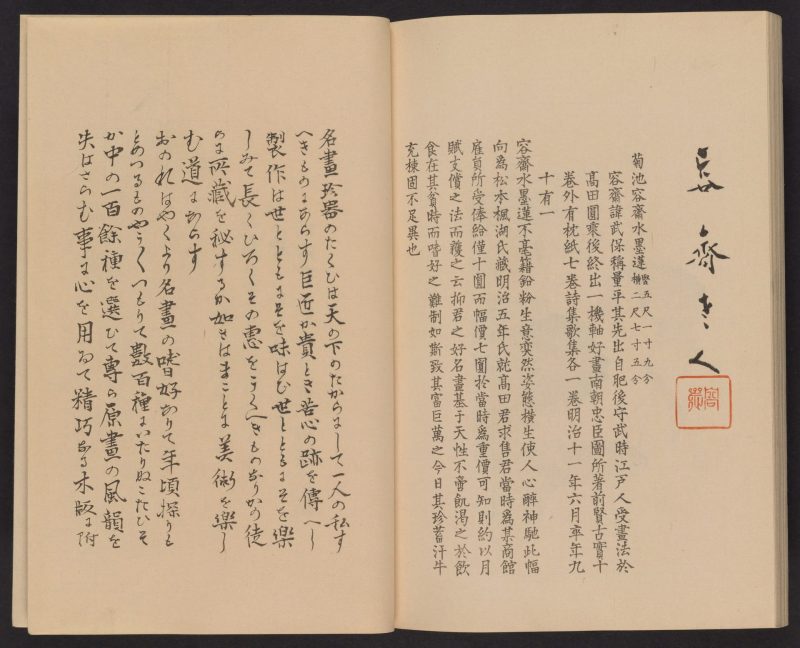 容齋老人
菊池容齋水墨蓮 竪五尺一寸九分
横二尺七寸五分
容齋諱武保稱量平其先出自肥後守武時江戸人受畫法於
高田圓乘後終出一機軸好畫南朝忠臣圖所著前賢古實十
卷外有枕紙七卷詩集歌集各一卷明治十一年六月卒年九
十有一
容齋水墨蓮不毫籍鉛粉生意奕然姿態横生使人心醉神馳此幅
向爲松本楓湖氏藏明治五年氏就高田君求售君當時爲某商館
雇員所受俸給僅十圓而幅價七圓於當時爲重價可知則約以月
賦支償之法而穫之云抑君之好名畫基于天性不啻飢渴之於飲
食在其貧時而嗜好之難制如斯致其富巨萬之今日其珍蓄汗牛
充棟固不足異也
名畫珍器のたくひは天の下のたからまして一人の私す
へきものにあらす巨匠か貴とき苦心の跡を傳へし
製作は世とともにそを味はひ世とともにそを樂
しみて長くひろくその惠をうくへきものなりかの徒
に所藏を秘するか如きはまことに美術を樂し
む道にあらす
おのれはやくより名畫の嗜好ありて年頃探りも
とめつるものやうやくつもりて數百種にいたりぬこたひそ
か中の一百餘種を選ひて專ら原畫の風韻を
失はさらむ事に心を用ゐて精巧なる木版に附